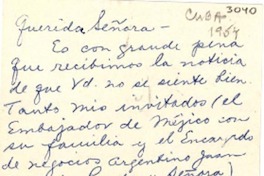 3040
CUBA
1954
Querida Señora -
Es con grande pena
que recibimos la noticia
de que Vd. no se siente bien.
Tanto mis invitados (el
Embajador de Méjico con
su familia y el Encargado
de negocios argentino Juan
Señora)